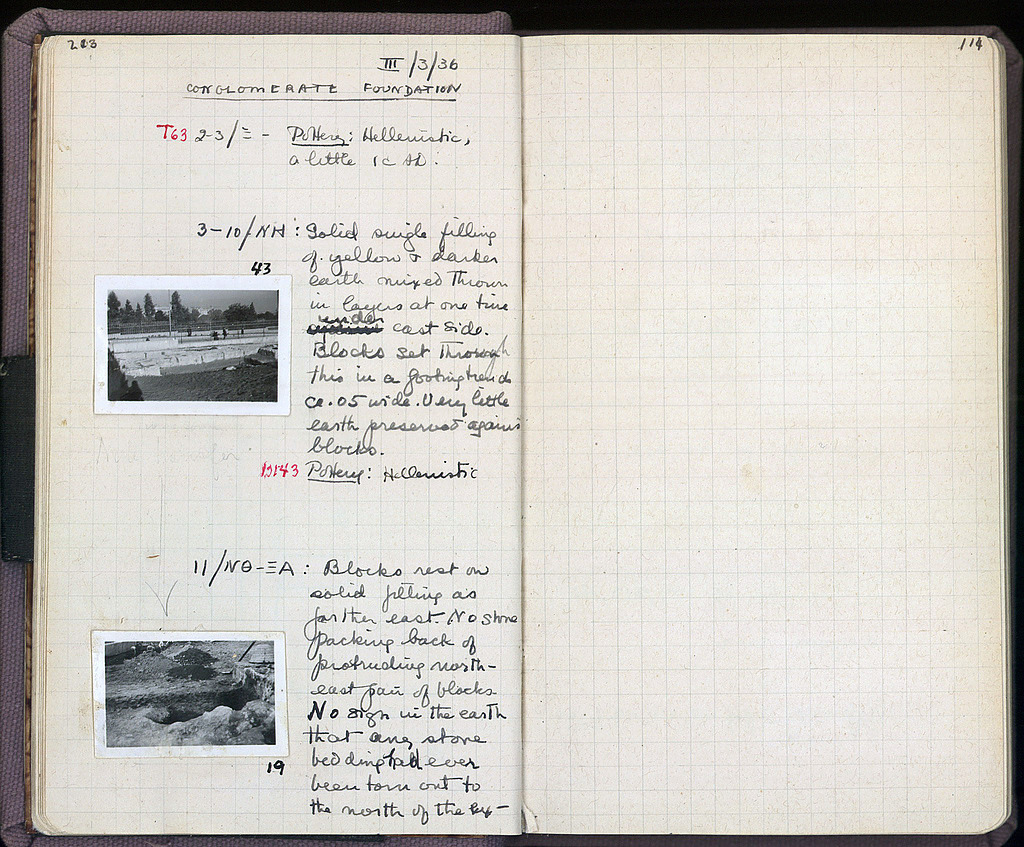 203
114
III/3/36
CONGLOMERATE FOUNDATION
T63 2-3/Ξ - Pottery: Hellenistic,
a little 1c AD.
3-10/NH: Solid single filling
of yellow & darker
earth mixed thrown
in layers at one time
under east side.
Blocks set through
this in a footing trench
ca. .05 wide. Very little
earth preserved against
blocks.
B143 Pottery: Hellenistic
43
11/NΘ-ΞA: Blocks rest on
solid filling as
farther east. No stone
packing back of
protruding north-
east pair of blocks
No sign in the earth
that any stone
bedding had ever
been torn out to
the north of the ex-
19